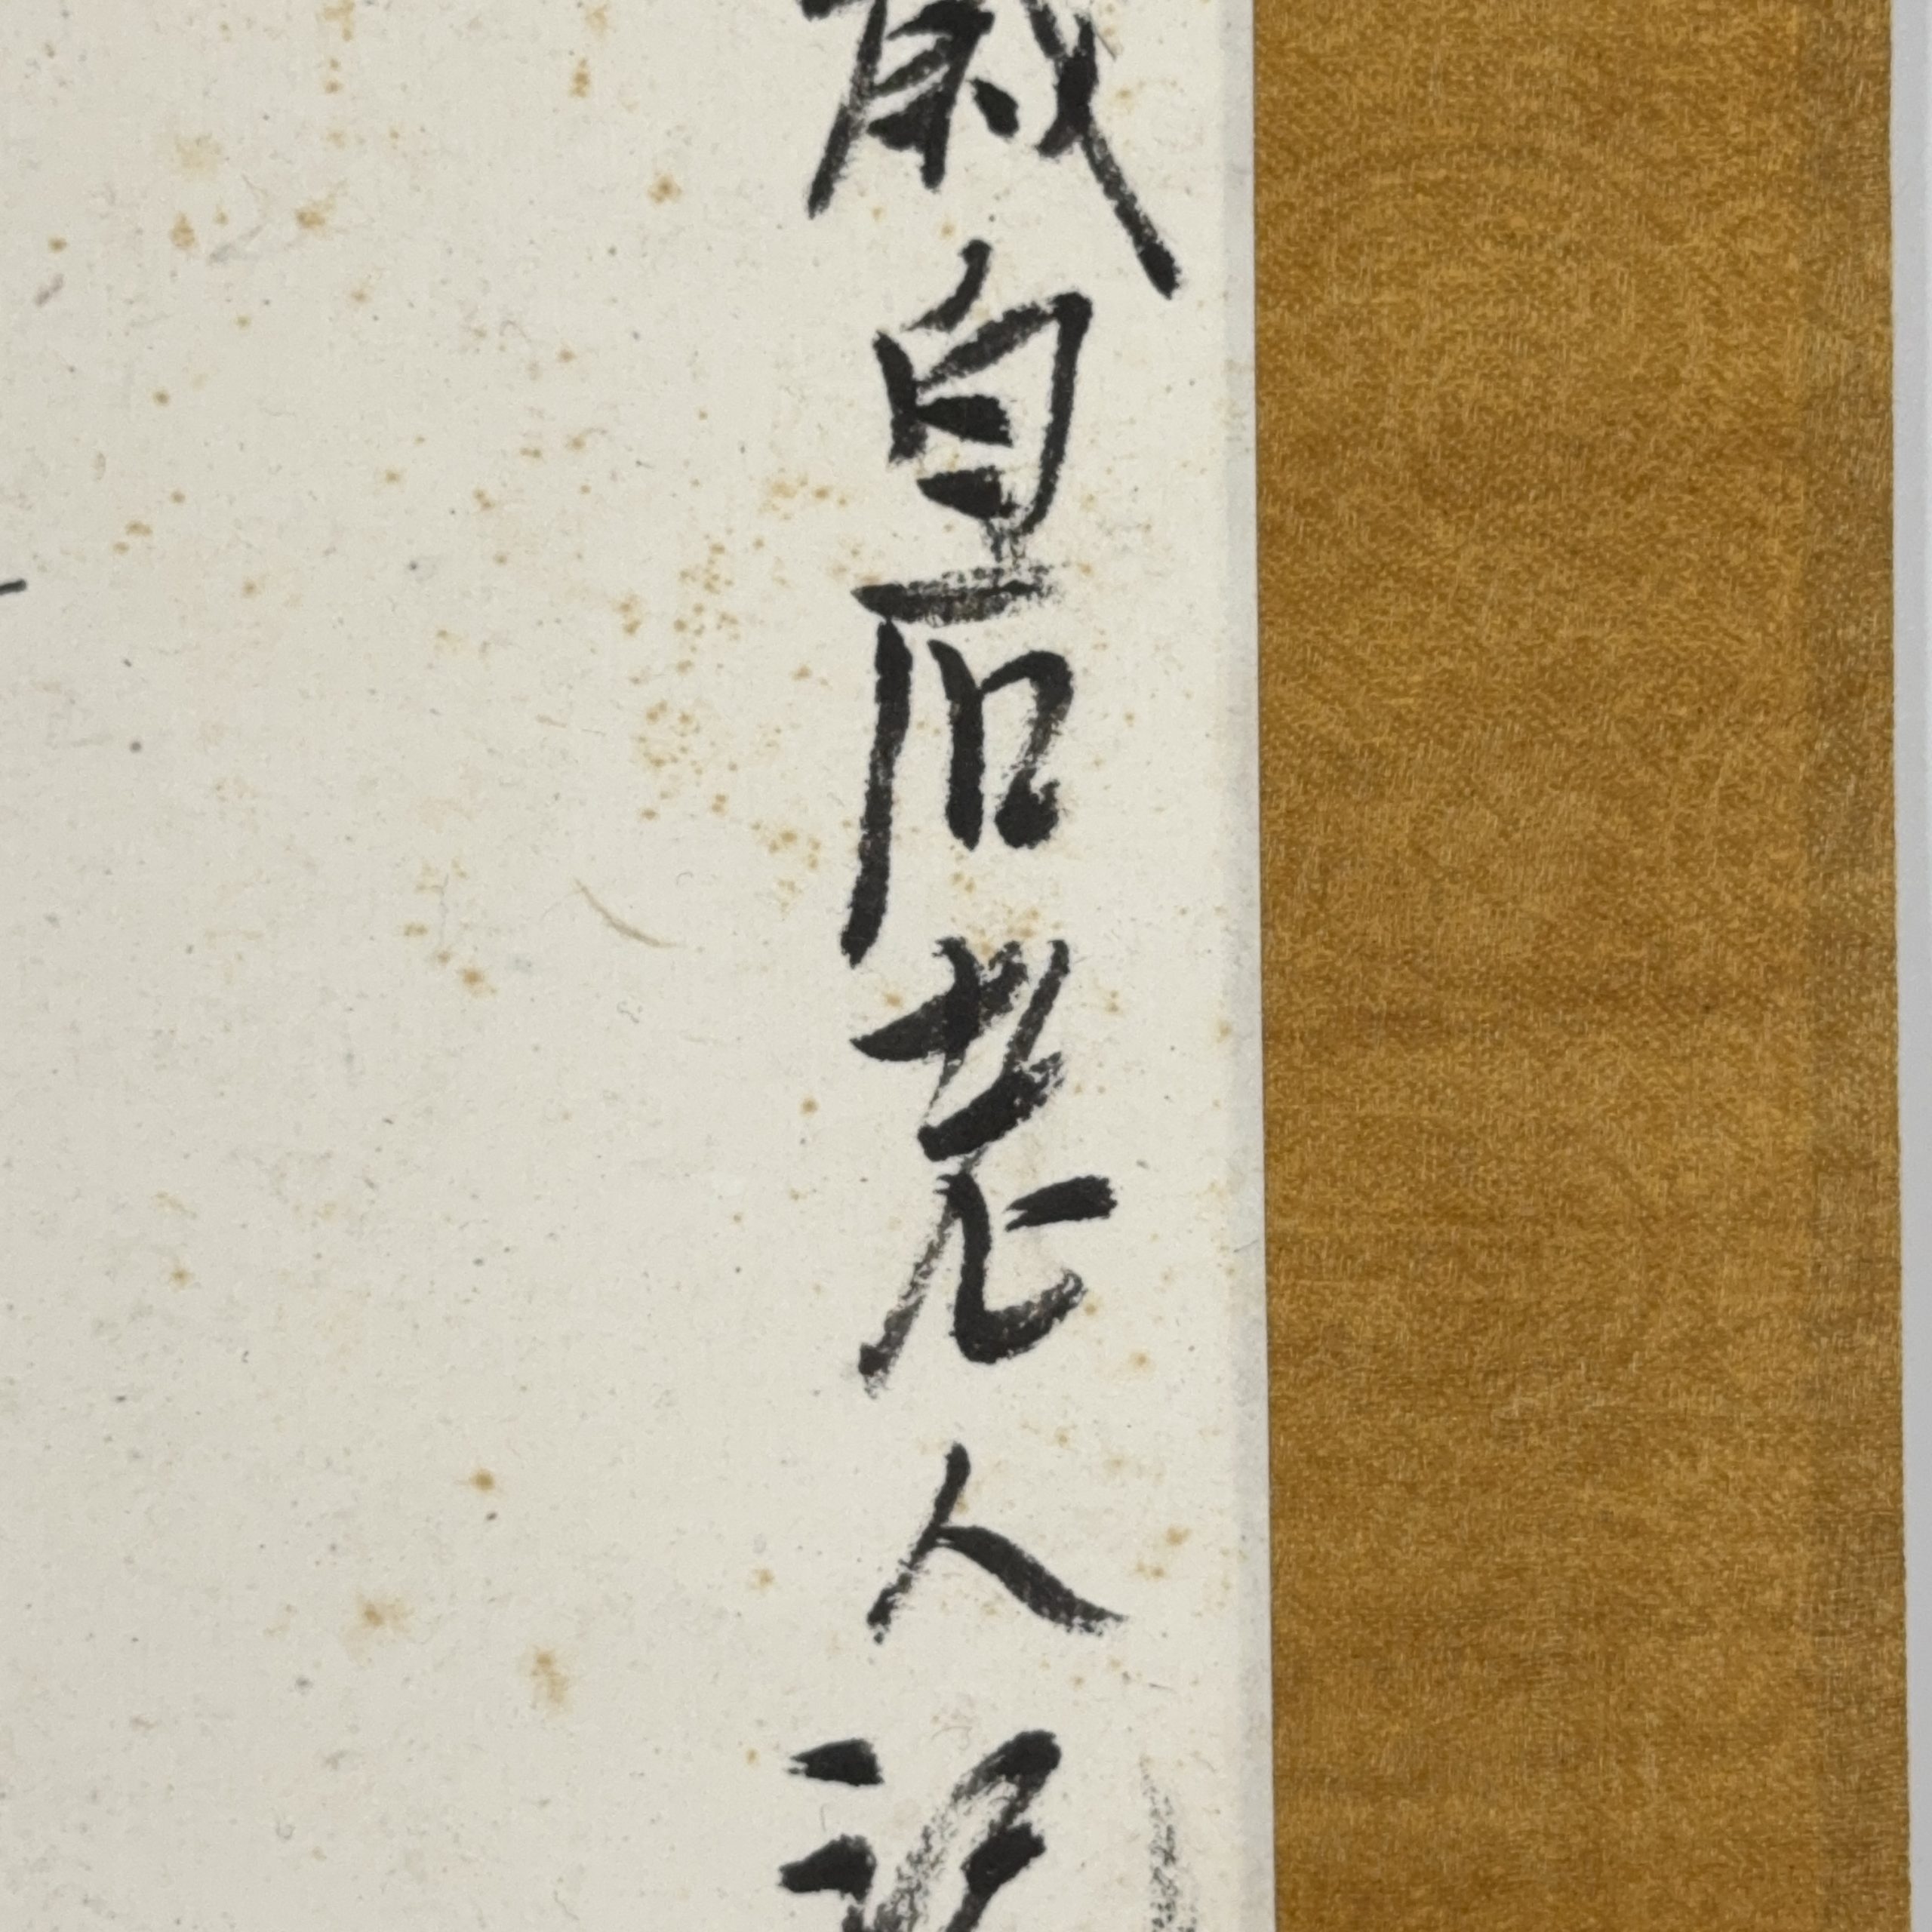 歲白石老人記